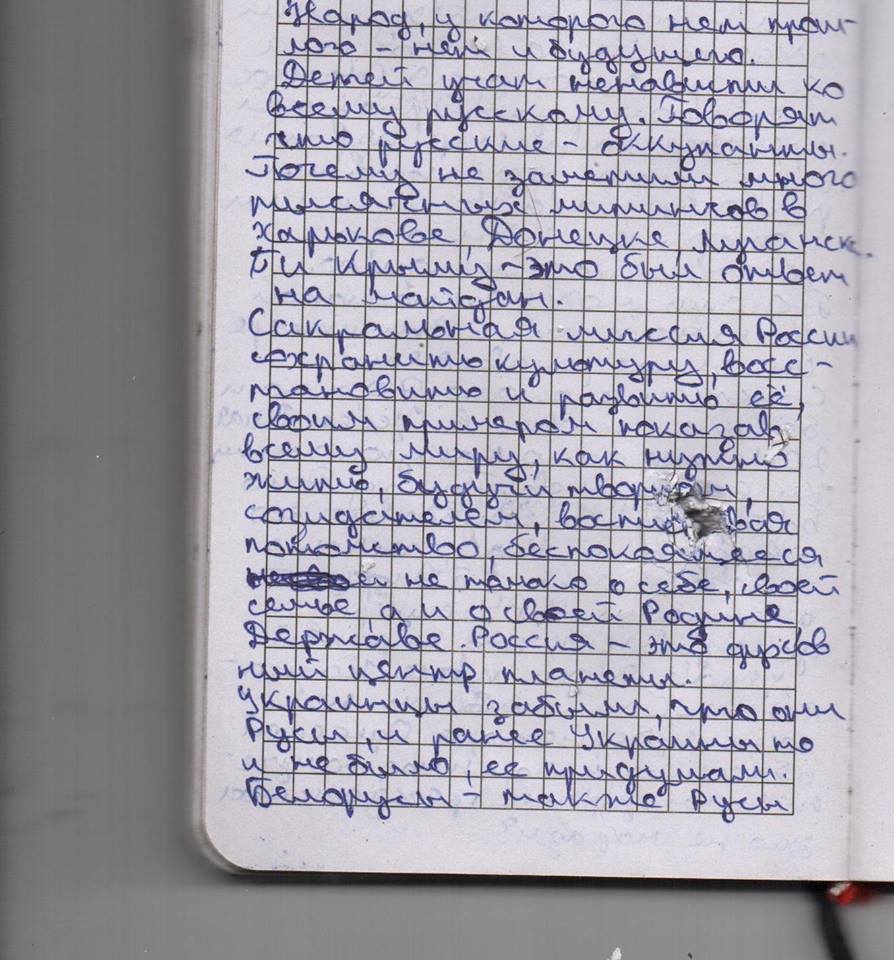 Народ, у которого нет прош-
лого - нет и будущего.
Детей учат ненависти ко
всему русскому. Говорят
что русские - оккупанты.
Почему не заметили много
тысячных митингов в
харькове, Донецке, Луганск.
Ги Крыму - это был ответ
на майдан.
Сакральная миссия России
сохранить культуру, восс-
тановить и развить её,
своим примером показав
всему миру, как нужно
жить, будучи творцом,
созидателем,
потомство, беспокоящееся
не только о себе, своей
семье, а и о своей Родине
Державе. Россия - это духов
ный центр планеты.
Украинцы забыли, что они
Русы, и ранее Украины то
и не было, её придумали.
Белорусы - также Русы